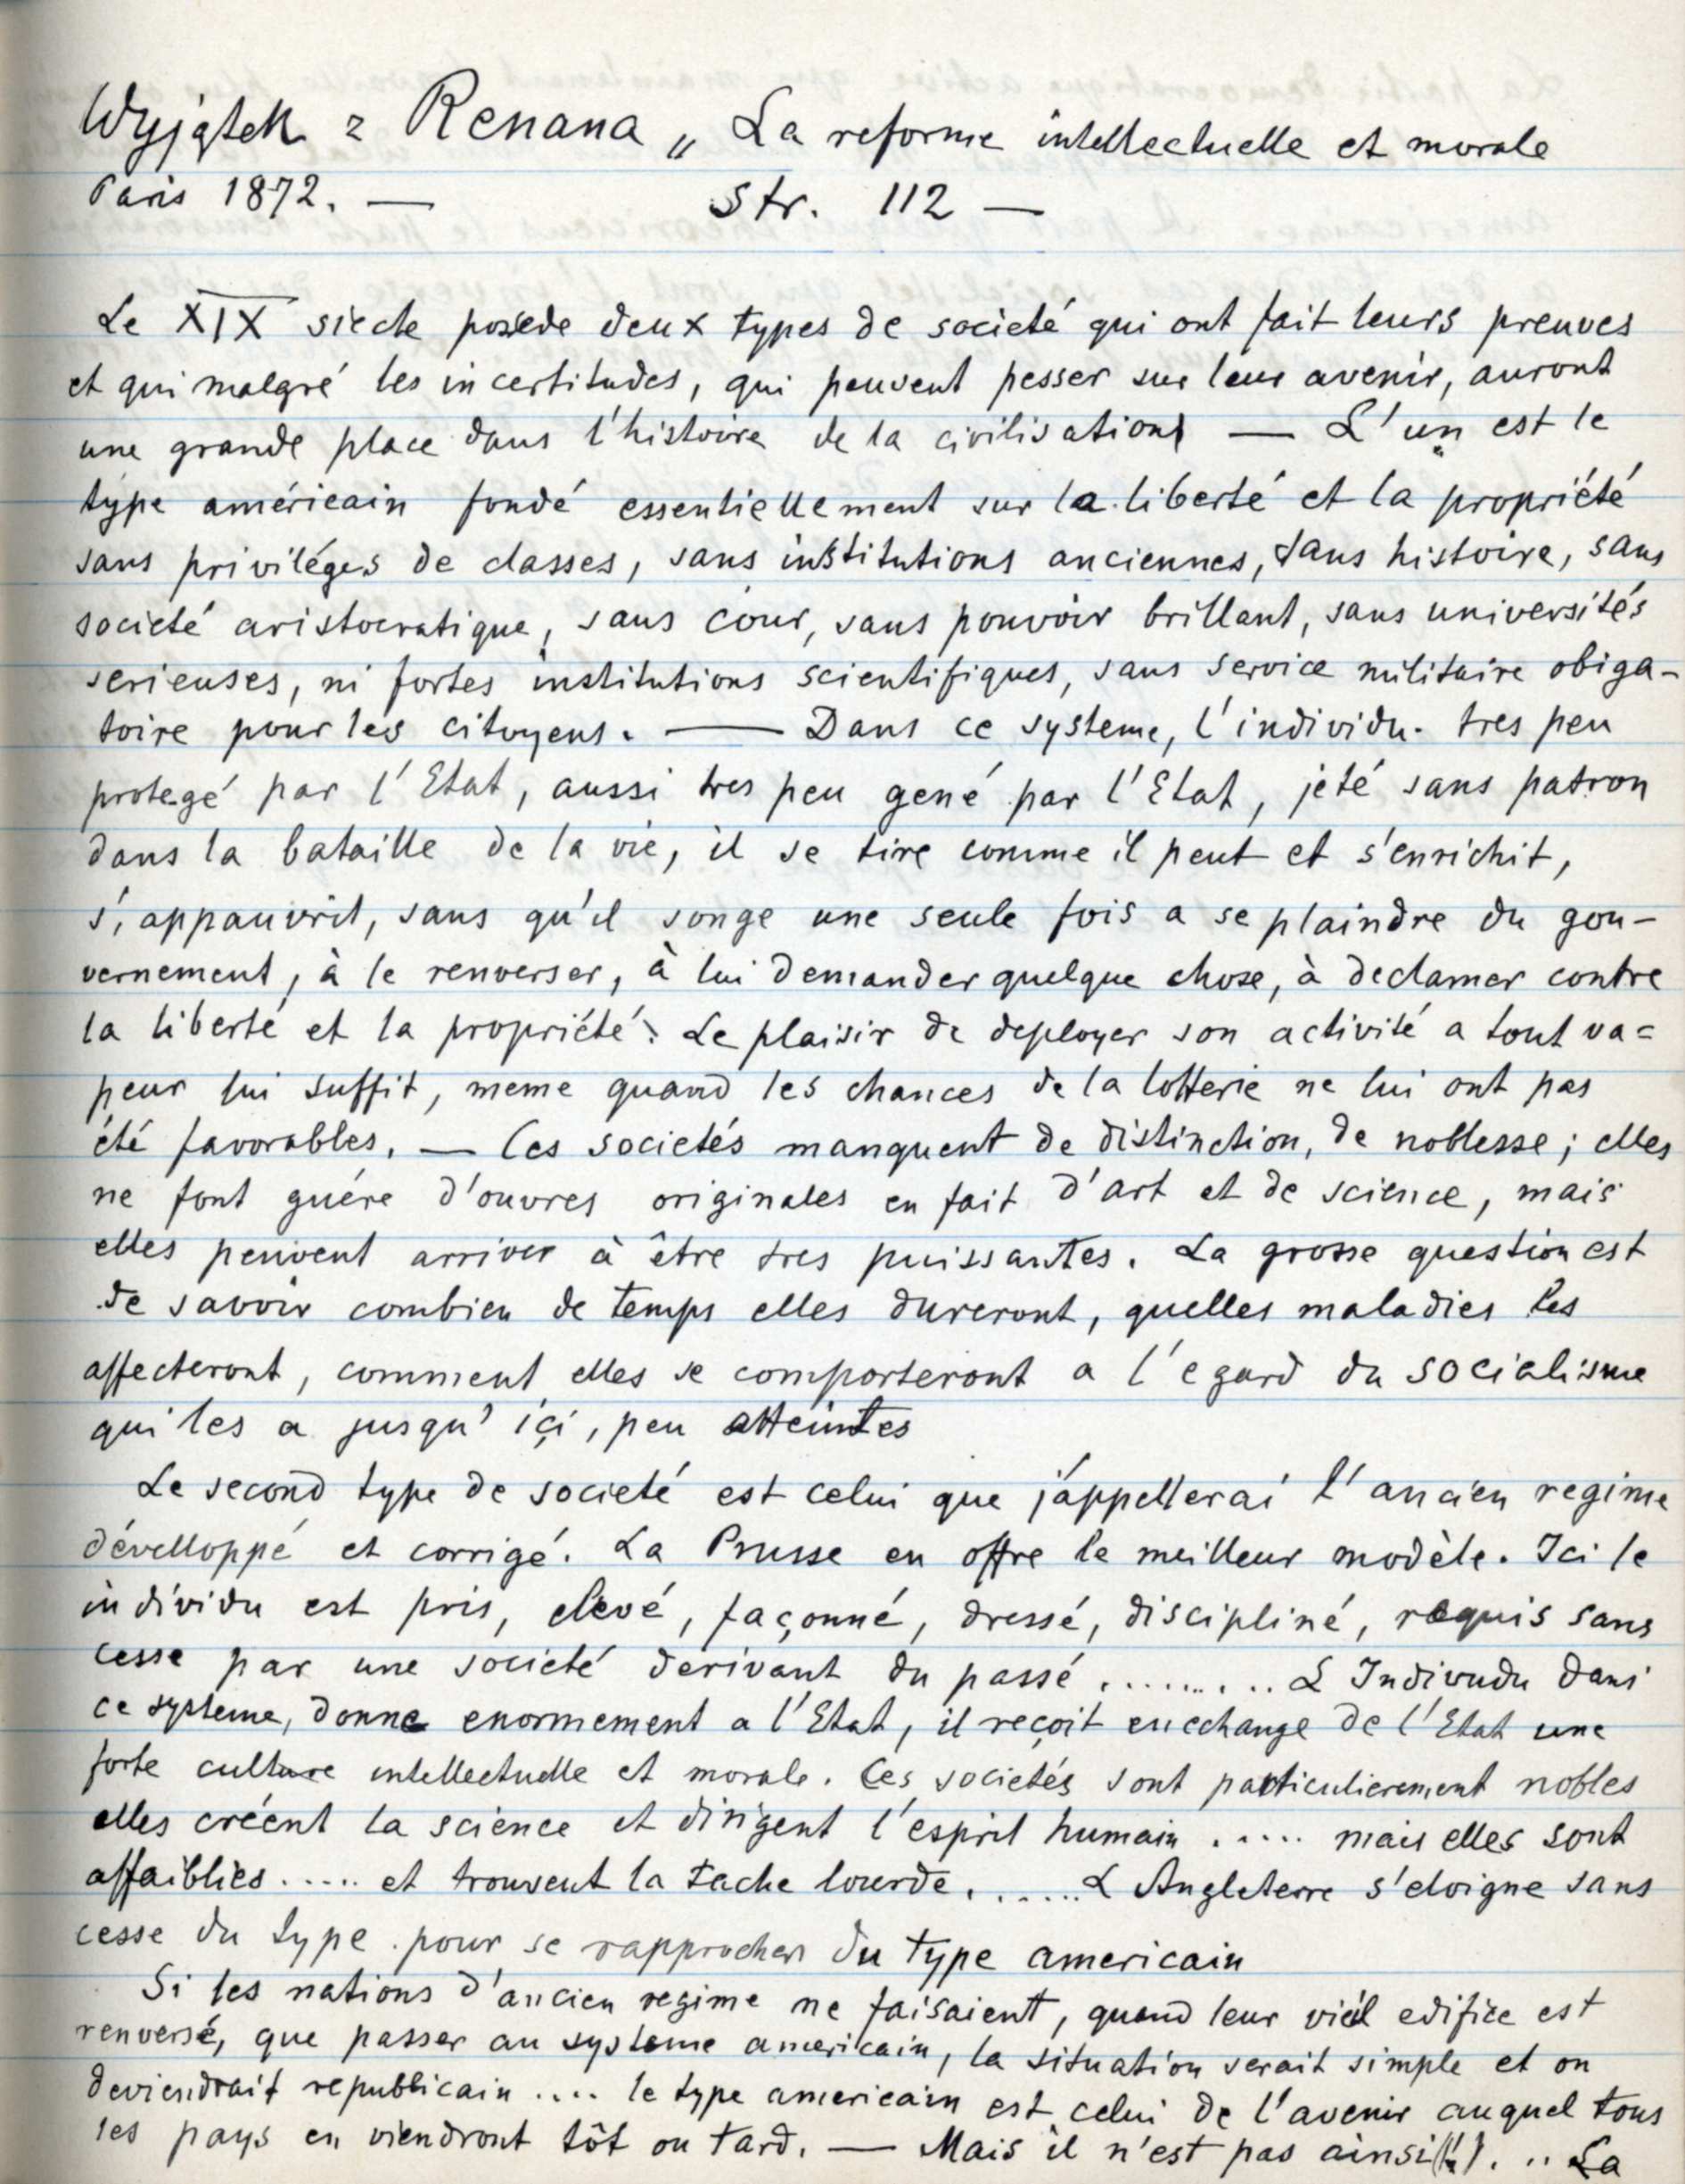 Wyjątek z Renana „ La reforme intellectuelle et morale
Paris 1872. — Str. 112 —
Le XIX siècle possede deux types de societé qui ont fait leurs preuves
et qui malgré les incertitudes, qui peuvent pesser sur leur avenir, auront
une grande place dans l'histoire de la civilisation — L'un est le
type américain fondé essentiellement sur la liberté et la propriété
sans priviléges de classes, sans institutions anciennes, sans histoire, sans
societé aristocratique, sans cour, sans pouvoir brillant, sans universités
serieuses, ni fortes institutions scientifiques, sans service militaire obiga-
toire pour les citoyens. — Dans ce systeme, l'individu. tres peu
protegé par l'Etat, aussi tres peu gené par l'Etat, jeté sans patron
dans la bataille de la vie, il se tire comme il peut et s'enrichit,
s'appauvrit, sans qu'il songe une seule fois a se plaindre du gou-
vernement, à le renverser, à lui demander quelque chose, à declamer contre
la liberté et la propriété. Le plaisir de deployer son activité a tout va=
peur lui suffit, meme quand les chances de la lotterie ne lui ont pas
été favorables. — Ces societés manquent de distinction, de noblesse; elles
ne font guére d'ouvres originales en fait d'art et de science, mais
elles peuvent arriver à être tres puissantes. La grosse question est
de savoir combien de temps elles dureront, quelles maladies les
affecteront, comment elles se comporteront a l'egard du socialisme
qui les a jusqu' içi, peu atteintes
Le second type de societé est celui que j'appellerai l'ancien regime
dévelloppé et corrigé. La Prusse en offre le meilleur modèle. Ici le
individu est pris, elevé, façonné, dressé, discipliné, requis sans
cesse par une societé derivant du passé .......... L Indivudu dans
ce systeme, donne enormement a l'Etat, il reçoit en echange de l'Etat une
forte culture intellectuelle et morale. Ces societés sont particulierement nobles
elles créent la science et dirigent l'esprit humain ..... mais elles sont
affaiblies ..... et trouvent la tache lourde. ...... L Angleterre s'eloigne sans
cesse du type pour se rapprocher du type americain
Si les nations d'ancien regime ne faisaient, quand leur vieil edifice est
renversé, que passer au systeme americain, la situation serait simple et on
deviendrait republicain .... le type americain est celui de l'avenir auquel tous
les pays en viendront tôt ou tard. — Mais il n'est pas ainsi(!). .. La